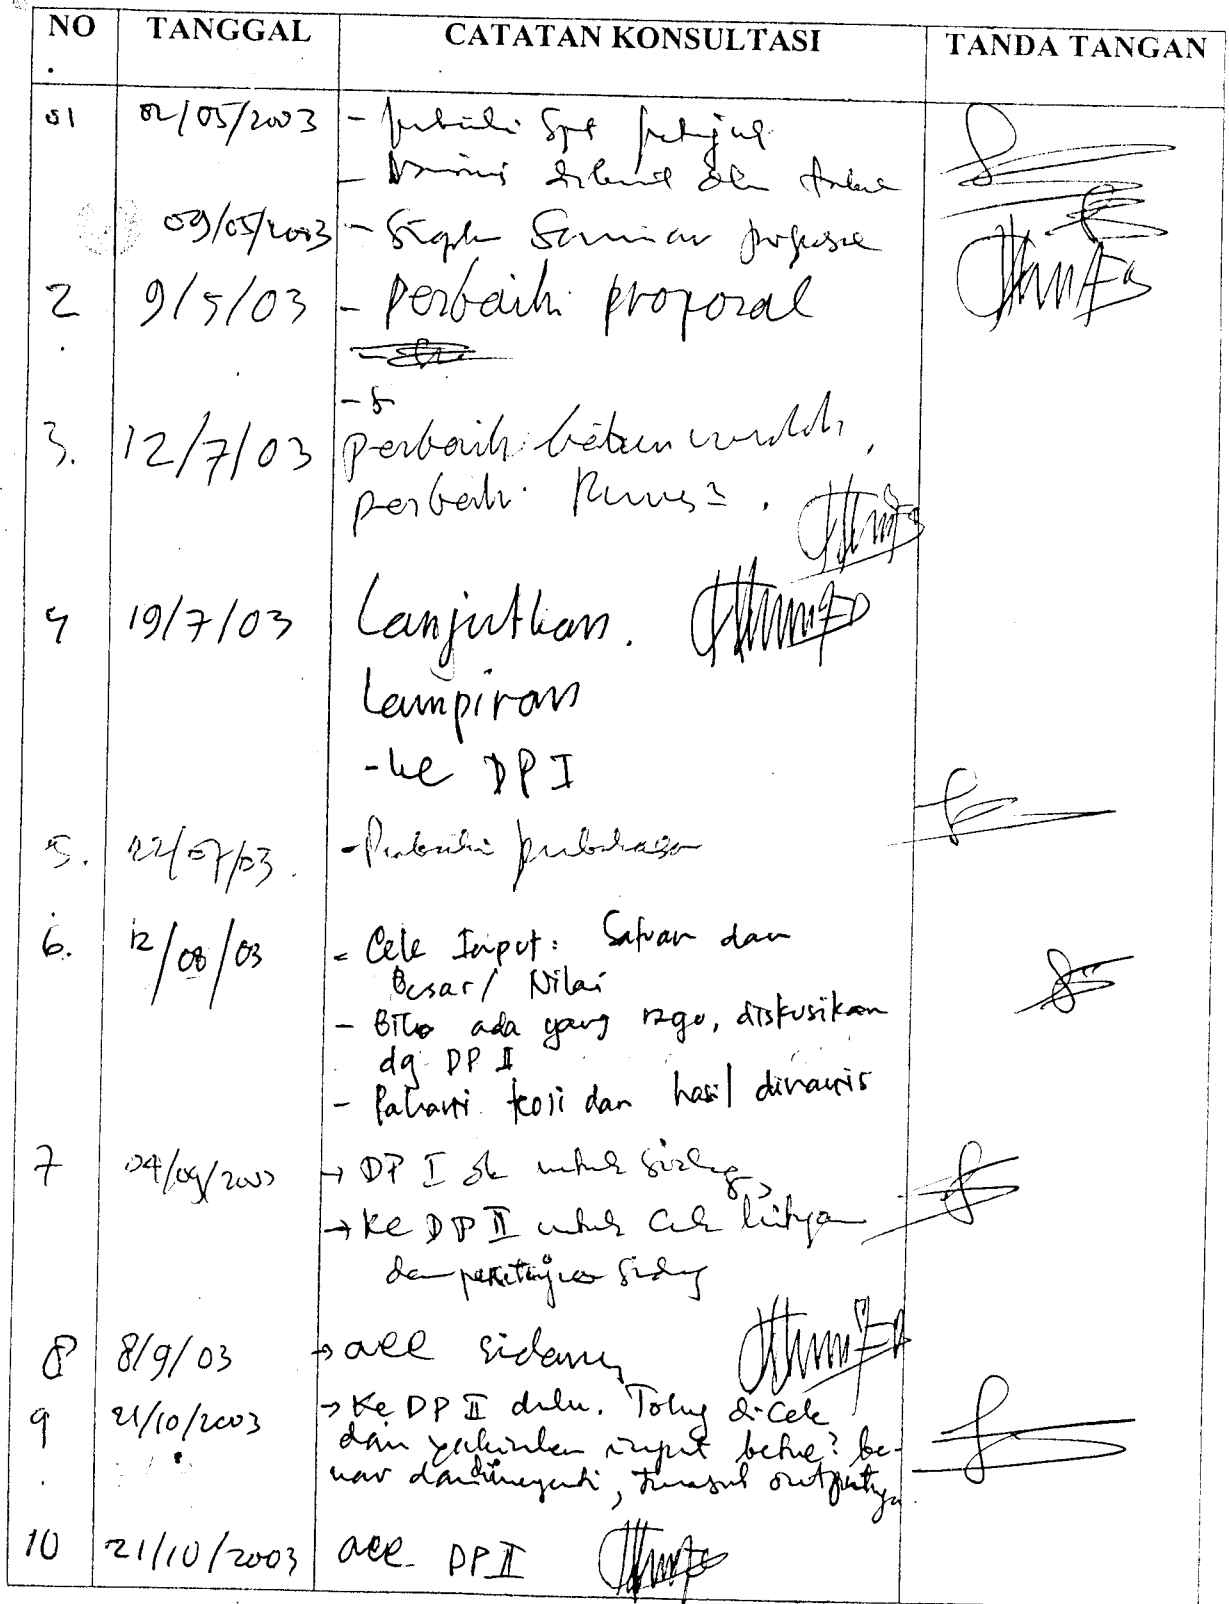 NO. TANGGAL CATATAN KONSULTASI TANDA TANGAN
01 02/05/2003 - perbaiki
-
09/05/2003 - Siapkan Seminar proposal
2. 9/5/03 - Perbaiki proposal
3. 12/7/03 perbaiki
perbaiki Rumus2.
4 19/7/03 Lanjutkan.
Lampiran
- ke DP I
5. 22/07/03. - Perbaiki pembahasan
6. 12/08/03 - Cek Input: Satuan dan
Besar / Nilai
- Bila ada yang ragu, diskusikan
dg DP II
- Pahami teori dan hasil dinamis
7 04/09/2003 → DP I ok untuk Sidang,
→ Ke DP II untuk Cek
dan persetujuan Sidang
8 8/9/03 → acc sidang
9. 21/10/2003 → Ke DP II dulu. Tolong di cek
dan yakinkan input betul2 be-
nar dan dimengerti, termasuk outputnya.
10 21/10/2003 acc DP II